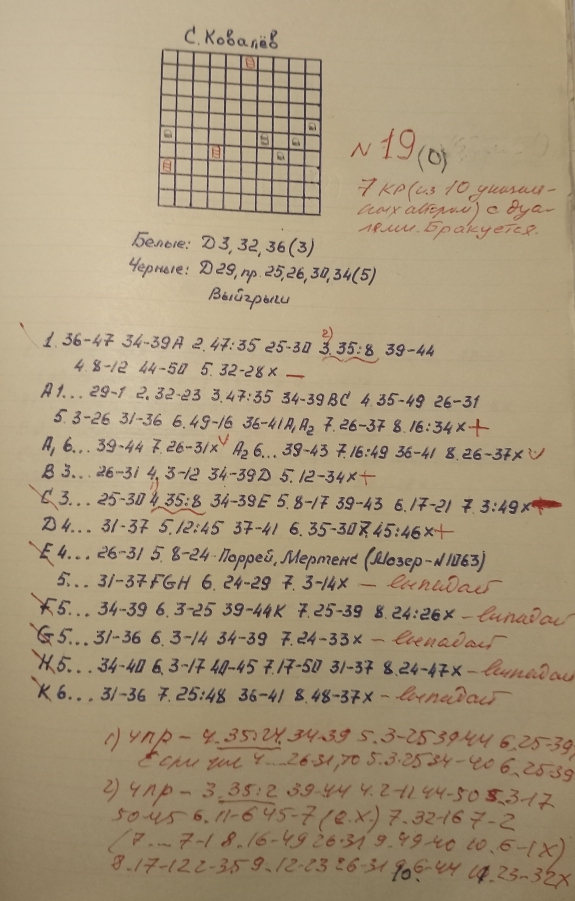 С. Ковалёв
N 19 (0)
7 КР (из 10 указан-
ных автором) с дуа-
лями. Бракуется.
Белые: Д 3, 32, 36 (3)
Черные: Д 29, пр. 25, 26, 30, 34 (5)
Выйгрыш
1. 36-47 34-39A 2. 47:35 25-30 2) 3. 35:8 39-44
4. 8-12 44-50 5. 32-28x —
A 1... 29-1 2. 32-23 3. 47:35 34-39 B C 4. 35-49 26-31
5. 3-26 31-36 6. 49-16 36-41 A₁ A₂ 7. 26-37 8. 16:34x +
A₁ 6... 39-44 7. 26-31x A₂ 6... 39-43 7. 16:49 36-41 8. 26-37x
B 3... 26-31 4. 3-12 34-39D 5. 12-34x +
C 3... 25-30 1) 4. 35:8 34-39E 5. 8-17 39-43 6. 17-21 7. 3:49x
D 4... 31-37 5. 12:45 37-41 6. 35-30 7. 45:46x +
E 4... 26-31 5. 8-24 Поррей, Мертенс (Мозер - N1063)
5... 31-37 F G H 6. 24-29 7. 3-14x — выпадает
F. 5... 34-39 6. 3-25 39-44K 7. 25-39 8. 24:26x — выпадает
G 5... 31-36 6. 3-14 34-39 7. 24-33x — выпадает
H. 5... 34-40 6. 3-17 40-45 7. 17-50 31-37 8. 24-47x — выпадает
K 6... 31-36 7. 25:48 36-41 8. 48-37x — выпадает
1) ЧПР - 4. 35:24 34-39 5. 3-25 39-44 6. 25-39,
Если же 4... 26-31, то 5. 3-25 34-40 6. 25-39
2) ЧПР - 3. 35:2 39-44 4. 2-11 44-50 5. 3-17
50-45 6. 11-6 45-7 (е.х.) 7. 32-16 7-2
(7... 7-1 8. 16-49 26-31 9. 49-40 10. 6-1x)
8. 17-12 2-35 9. 12-23 26-31 10. 6-44 11. 23-32x